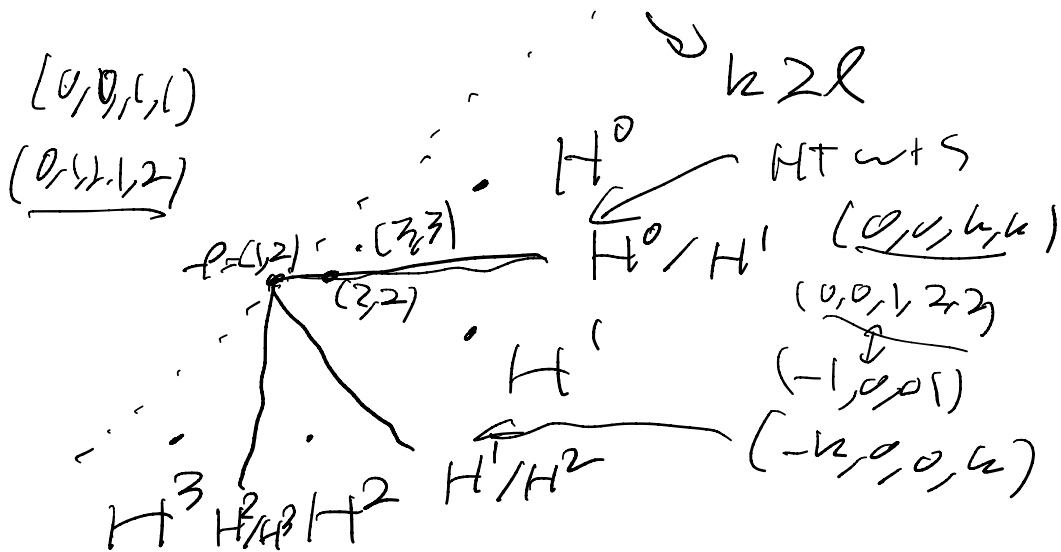 (0,0,1,1)
(0,1,1,2)
k≥l
H⁰
HT wts
-ρ=(1,2)
(3,3)
H⁰/H¹
(0,0,k,k)
(3,2)
(0,0,1,2,2)
H¹
(-1,0,0,1)
H¹/H²
(-k,0,0,k)
H³
H²/H³
H²